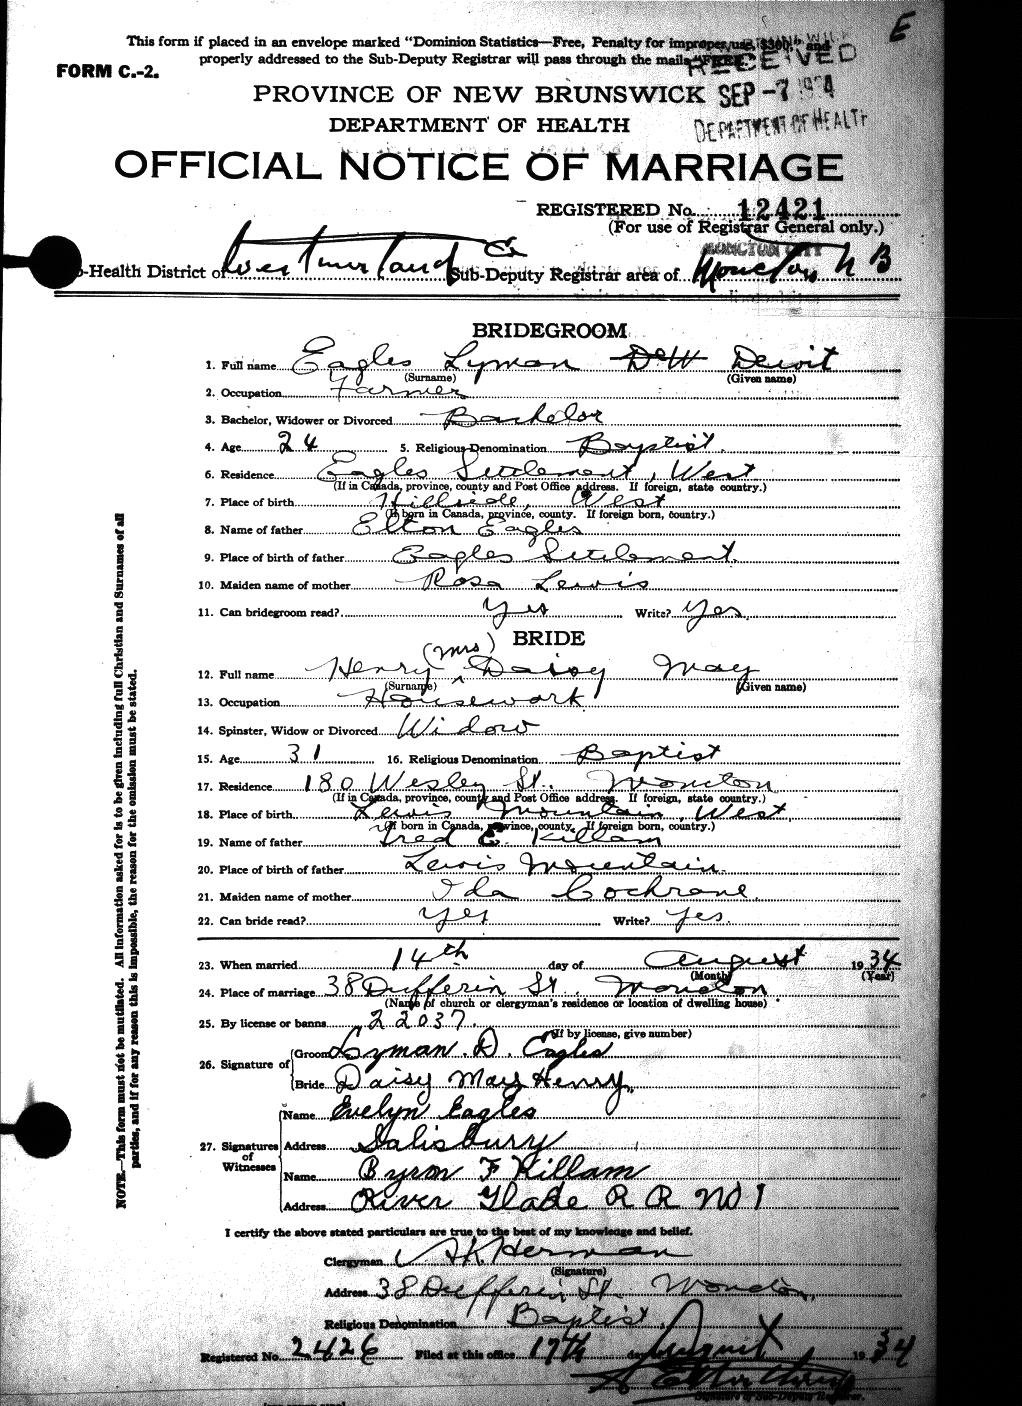 E
This form if placed in an envelope marked "Dominion Statistics—Free, Penalty for improper use, $300," and
properly addressed to the Sub-Deputy Registrar will pass through the mails "FREE."
FORM C.-2.
RECEIVED
SEP -7 1934
DEPARTMENT OF HEALTH
PROVINCE OF NEW BRUNSWICK
DEPARTMENT OF HEALTH
OFFICIAL NOTICE OF MARRIAGE
REGISTERED No. 12421
(For use of Registrar General only.)
MONCTON CITY
-Health District of Westmorland Sub-Deputy Registrar area of Moncton N B
BRIDEGROOM
1. Full name Eagles Lyman DeW Dewit
(Surname) (Given name)
2. Occupation Farmer
3. Bachelor, Widower or Divorced Bachelor
4. Age 24 5. Religious Denomination Baptist.
6. Residence Eagles Settlement, West
(If in Canada, province, county and Post Office address. If foreign, state country.)
7. Place of birth Hillside, West
(If born in Canada, province, county. If foreign born, country.)
8. Name of father Elton Eagles
9. Place of birth of father Eagles Settlement.
10. Maiden name of mother Rosa Lewis
11. Can bridegroom read? Yes Write? Yes.
BRIDE
12. Full name Henry (Mrs) Daisy May
(Surname) (Given name)
13. Occupation Housework
14. Spinster, Widow or Divorced Widow
15. Age 31 16. Religious Denomination Baptist
17. Residence 180 Wesley St. Moncton
(If in Canada, province, county and Post Office address. If foreign, state country.)
18. Place of birth Lewis Mountain, West.
(If born in Canada, province, county. If foreign born, country.)
19. Name of father Fred E. Killam
20. Place of birth of father Lewis Mountain.
21. Maiden name of mother Ida Cochrane.
22. Can bride read? Yes Write? Yes.
23. When married 14th day of August 1934
(Month) (Year)
24. Place of marriage 38 Dufferin St. Moncton
(Name of church or clergyman's residence or location of dwelling house)
25. By license or banns 22037.
(If by license, give number)
26. Signature of Groom Lyman. D. Eagles
Bride Daisy May Henry.
27. Signatures of Witnesses
Name Evelyn Eagles
Address Salisbury
Name Byron F Killam
Address River Glade R R No 1
I certify the above stated particulars are true to the best of my knowledge and belief.
Clergyman A K Herman
(Signature)
Address 38 Dufferin St. Moncton,
Religious Denomination Baptist,
Registered No. 2426 Filed at this office 17th day August 1934
Signature of Sub-Deputy Registrar.
NOTE.—This form must not be mutilated. All information asked for is to be given including full Christian and Surnames of all
parties, and if for any reason this is impossible, the reason for the omission must be stated.